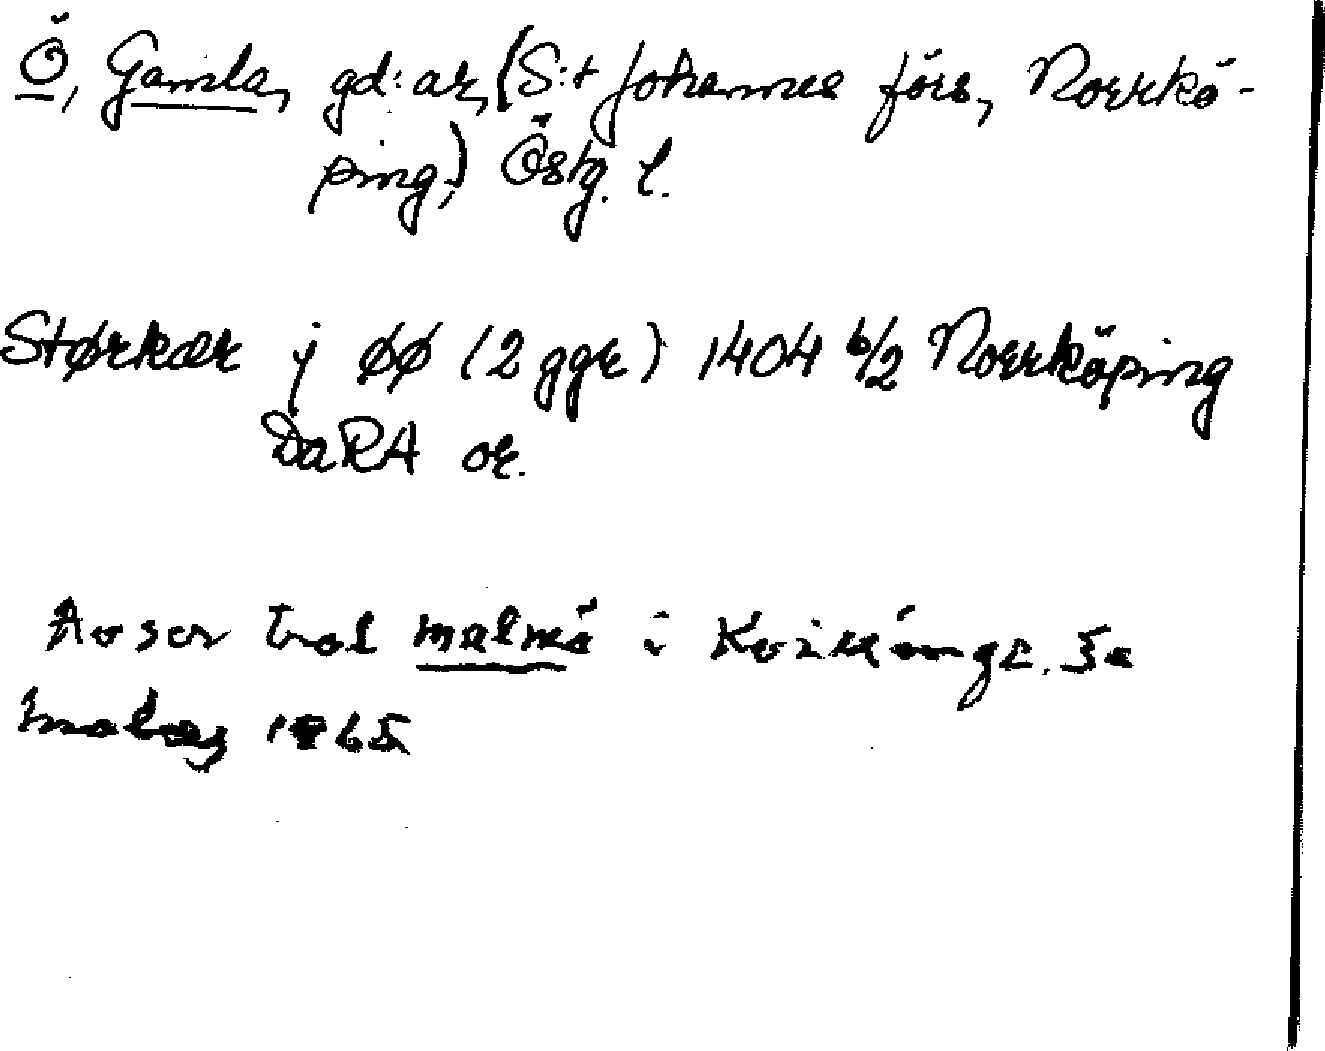 Ö, Gamla, gd:ar, (S:t Johannes förs, Norrkö-
ping,) Östg. l.
Størkær j øø (2 ggr) 1404 6/2 Norrköping
DaRA or.
Avser trol malmö i Kvillinge. Se